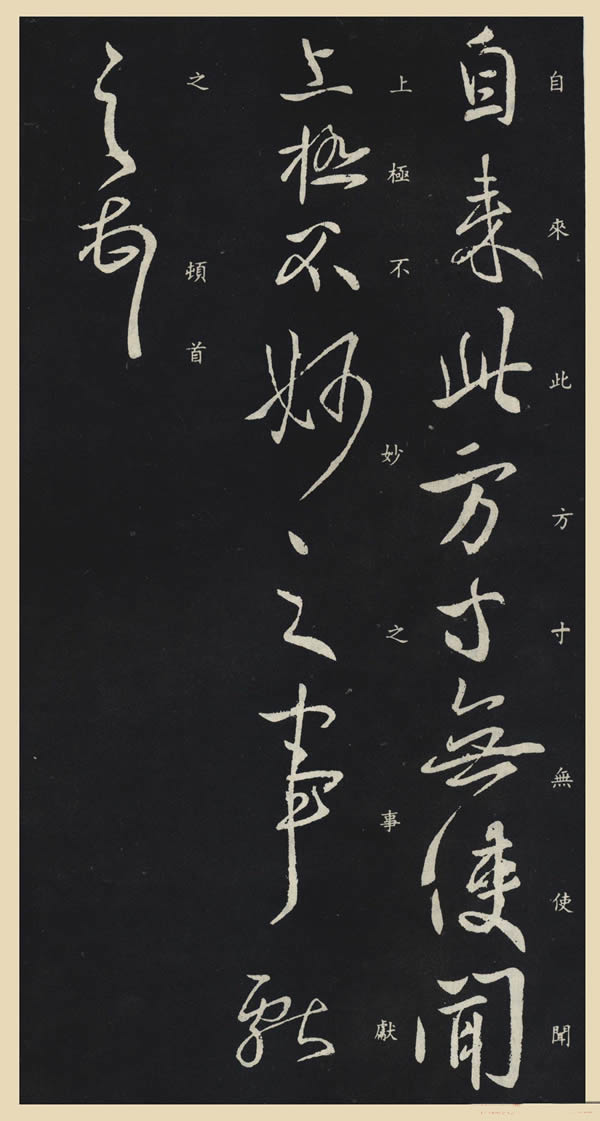 自來此方寸無使聞
自來此方寸無使聞
上極不妙之事獻
上極不妙之事獻
之頓首
之頓首